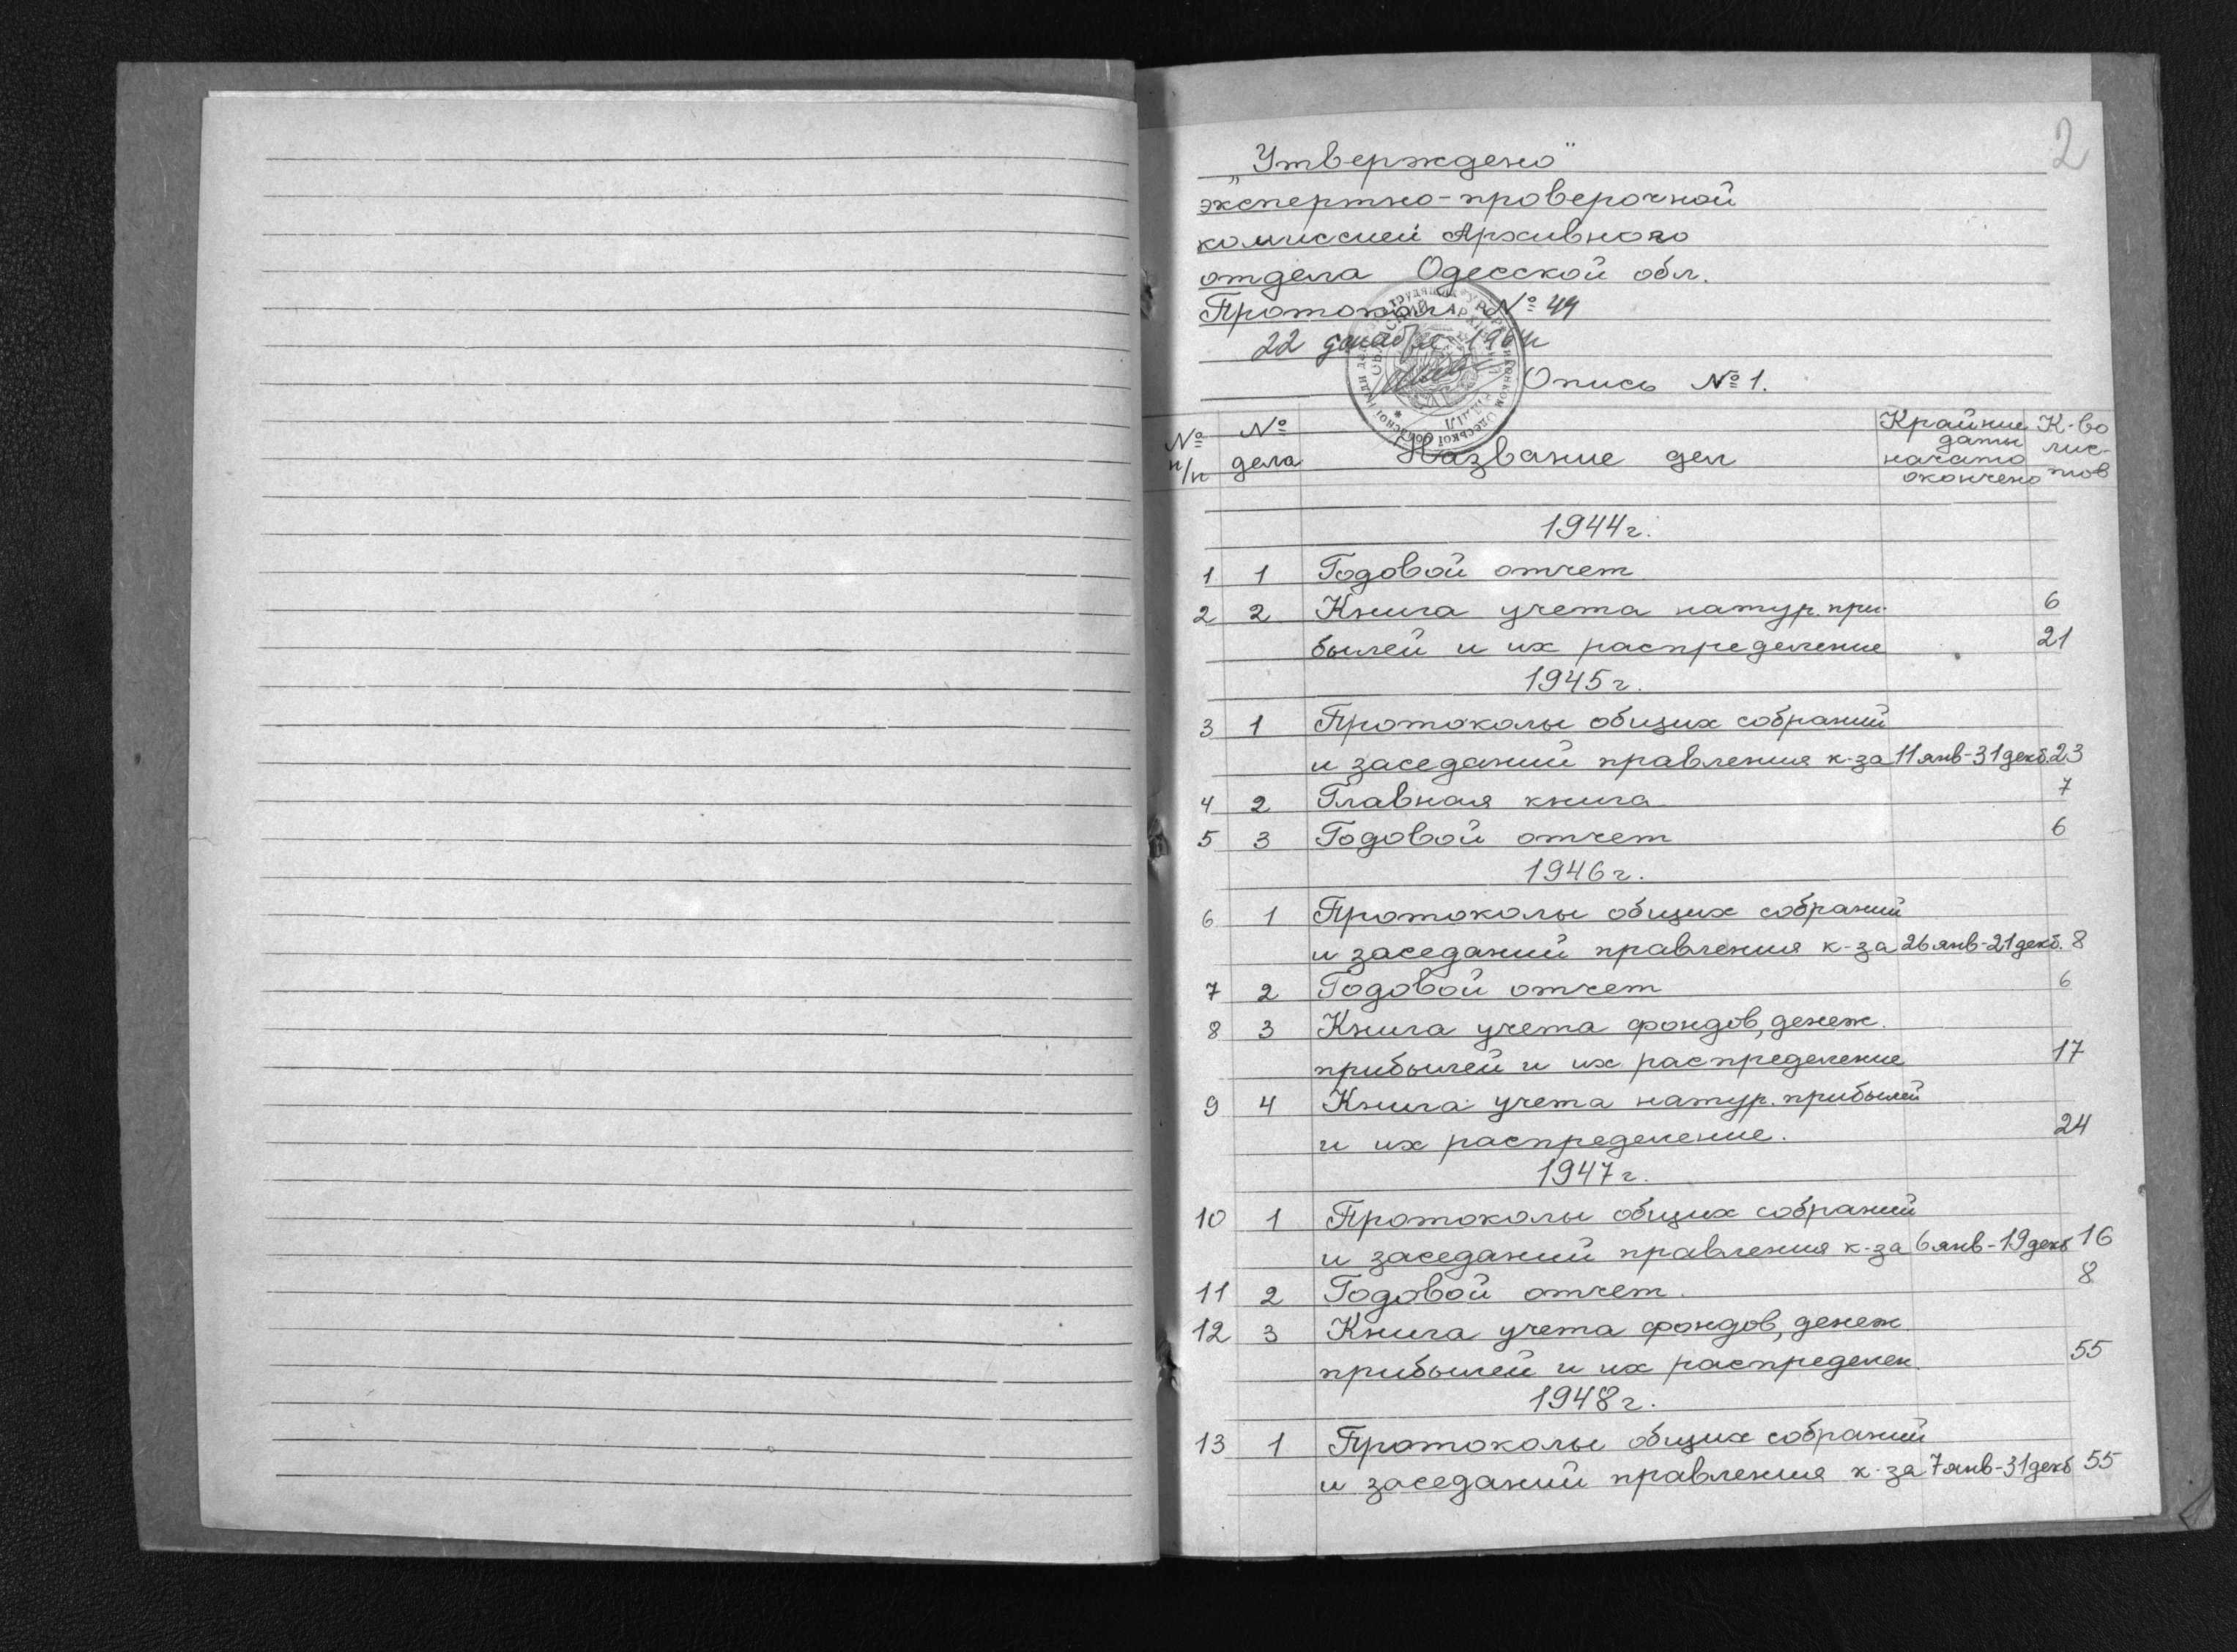 2
„Утверждено"
экспертно-проверочной
комиссией Архивного
отдела Одесской обл.
Протокол № 44
22 декабря 196
Опись № 1.
№ п/п № дела Название дел Крайние даты начато окончено К-во лис-тов
1944 г.
1 1 Годовой отчет
2 2 Книга учета натур. при- 6
былей и их распределение 21
1945 г.
3 1 Протоколы общих собраний
и заседаний правления к-за 11 янв-31 декб. 23
4 2 Главная книга 7
5 3 Годовой отчет 6
1946 г.
6 1 Протоколы общих собраний
и заседаний правления к-за 26 янв-21 декб. 8
7 2 Годовой отчет 6
8 3 Книга учета фондов, денеж.
прибылей и их распределение 17
9 4 Книга учета натур. прибылей
и их распределение. 24
1947 г.
10 1 Протоколы общих собраний
и заседаний правления к-за 6 янв-19 декб 16
11 2 Годовой отчет. 8
12 3 Книга учета фондов, денеж.
прибылей и их распределен. 55
1948 г.
13 1 Протоколы общих собраний
и заседаний правления к-за 7 янв-31 декб 55